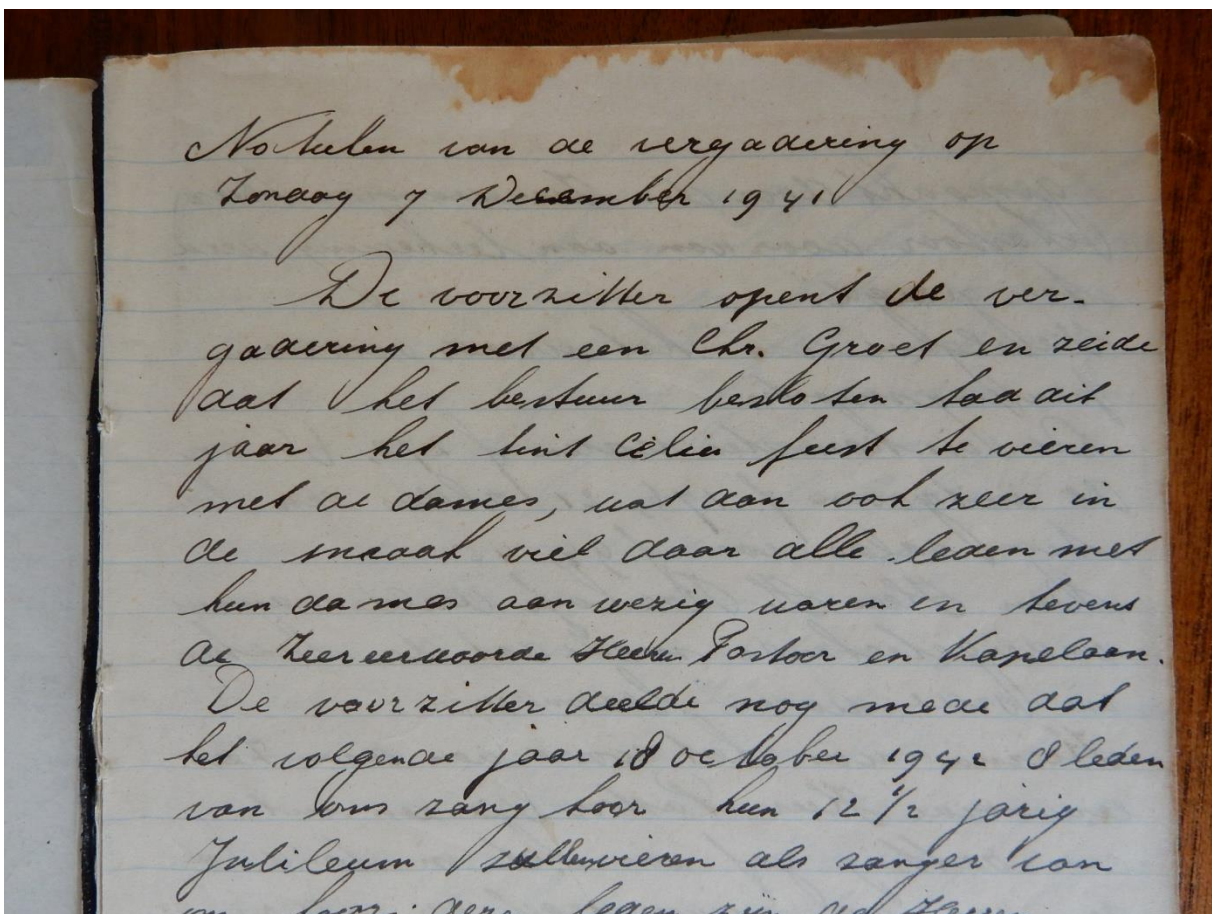 Notulen van de vergadering op
Zondag 7 December 1941
De voorzitter opent de ver-
gadering met een Chr. Groet en zeide
dat het bestuur besloten had dit
jaar het sint Célia feest te vieren
met de dames, wat dan ook zeer in
de smaak viel daar alle leden met
hun dames aanwezig waren en tevens
de Zeereerwaarde Heeren Pastoor en Kapelaan.
De voorzitter deelde nog mede dat
het volgende jaar 18 october 1942 8 leden
van ons zang koor hun 12 1/2 jarig
Jubileum zullen vieren als zanger van
koor. deze zijn de Heeren